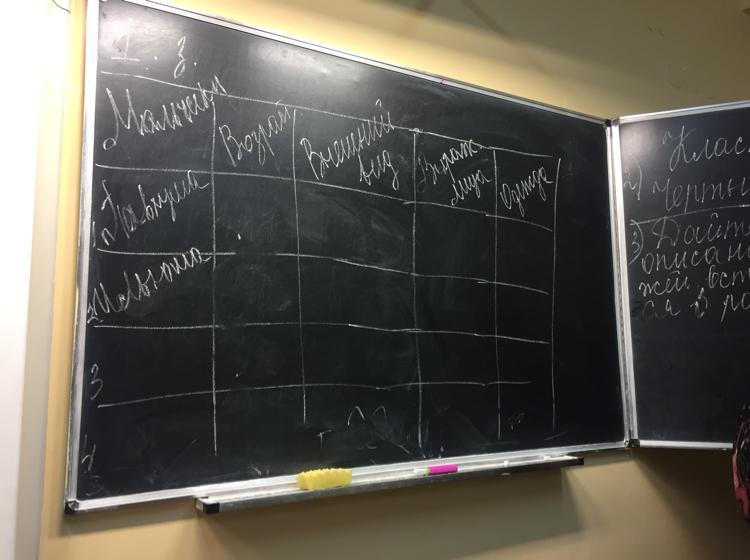 1. 3.
Мальчики
Возраст
Внешний
вид
Выраж.
лица
Одежда
1.
2.
3
4
5
Клас
2) Черты
3) Дайте
описани
жей, вст
ся в ра